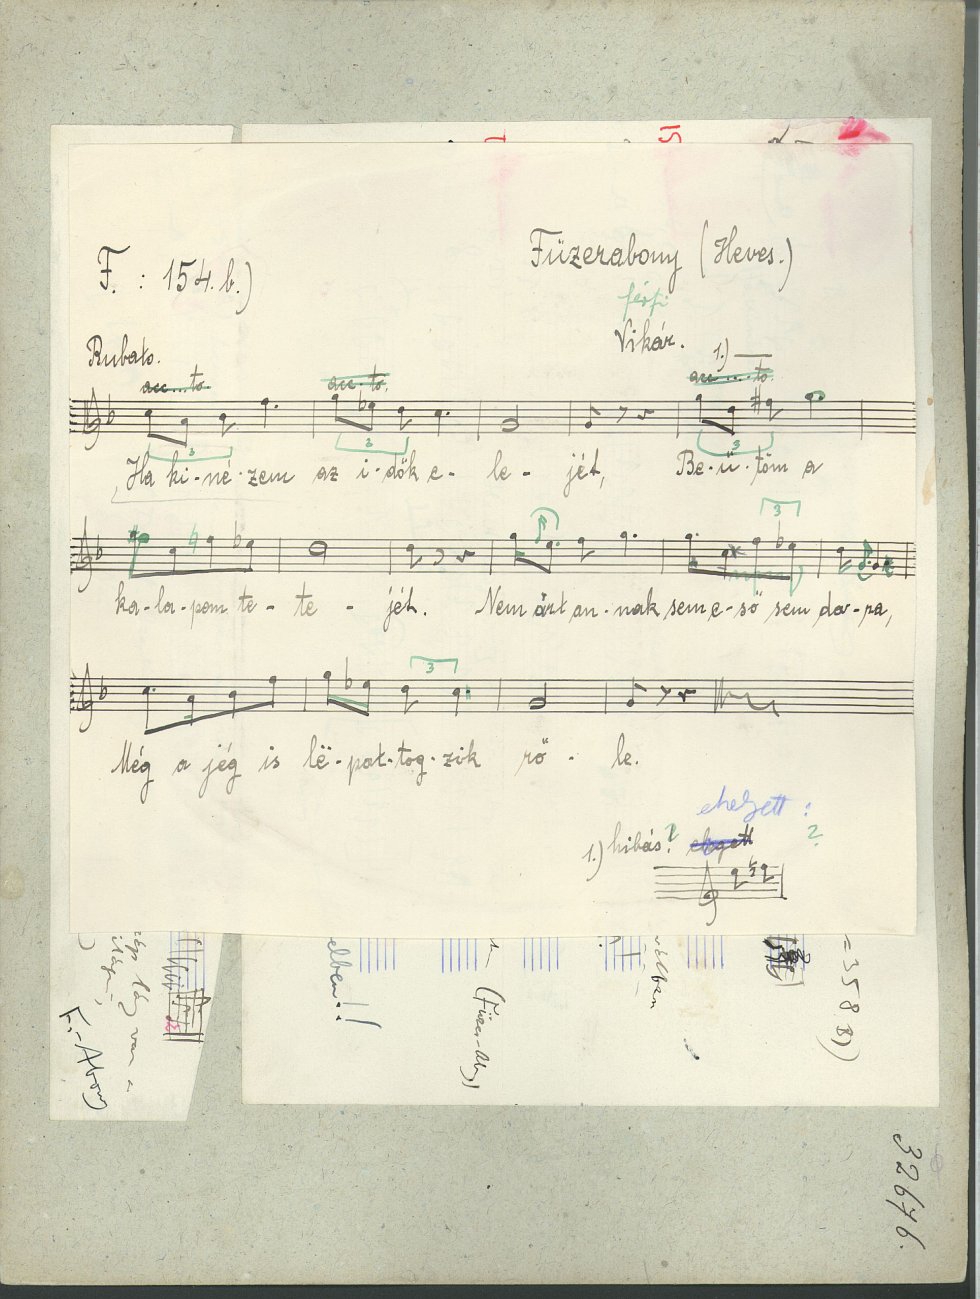 F. : 154. b.)
Füzerabony (Heves.)
férfi
Vikár.
Rubato.
1.)
acc....to
acc..to.
acc....to.
3
3
3
Ha ki-né-zem az i-dők e- le- jét, Be-ü-töm a
3
ka-la-pom te- te- jét. Nem árt an-nak sem e-ső sem da-ra,
3
Még a jég is lë-pat-tog-zik rő- le.
ehelyett :
1.) hibás ? ?
elben!!
(Füzer-Abony)
F.-Abony
van a
= 358 B))
32676.